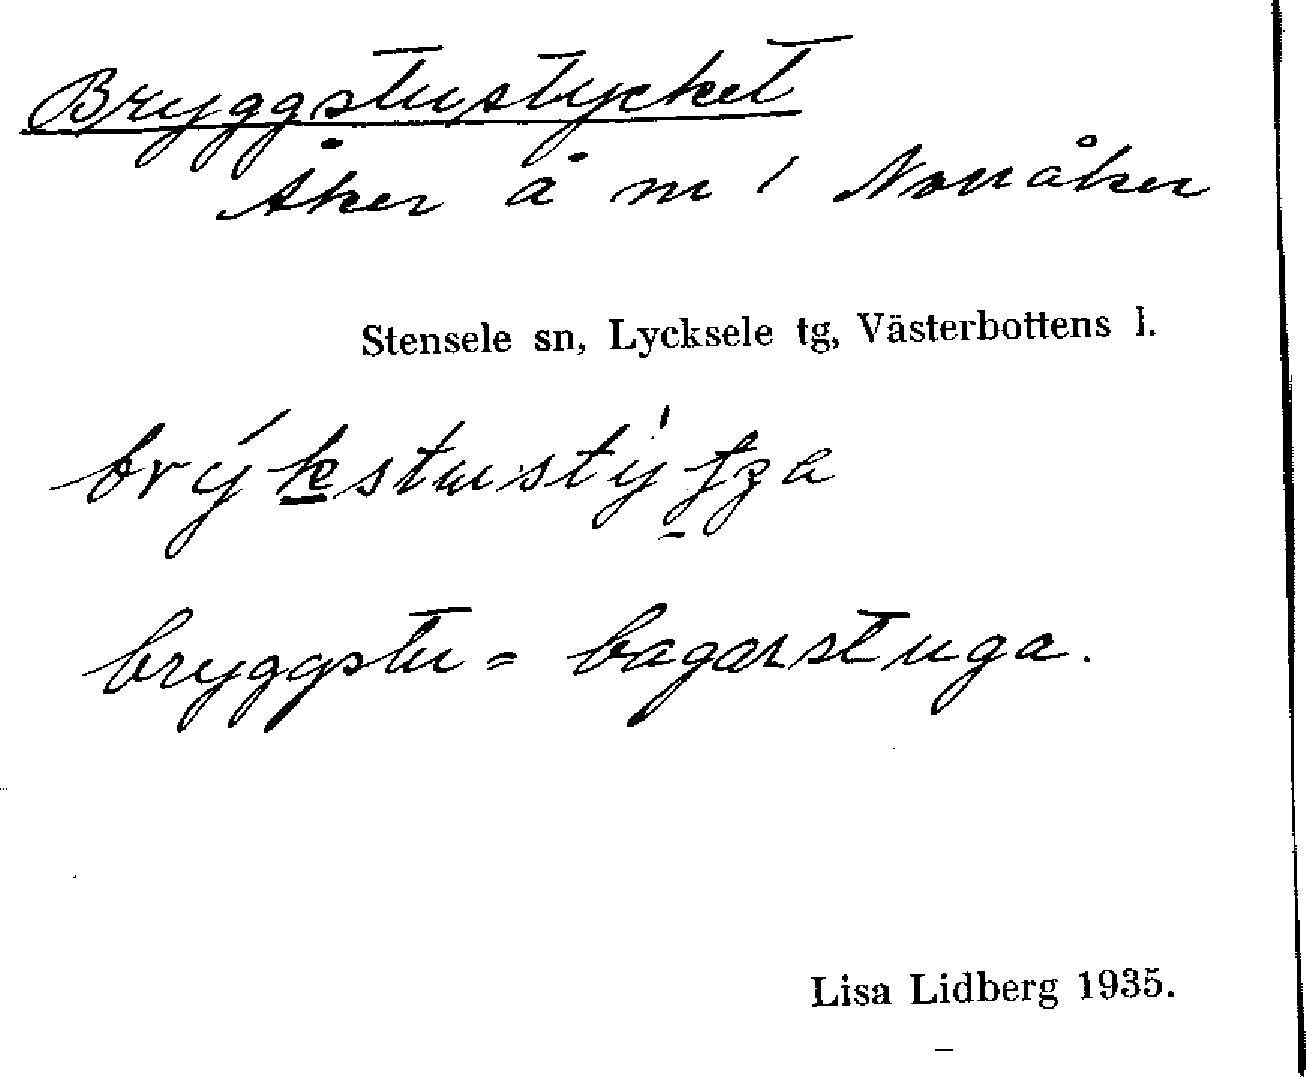 Bryggstustycket
Åker å nr 1 Norråker
Stensele sn, Lycksele tg, Västerbottens l.
bryggstu = bagarstuga.
Lisa Lidberg 1935.